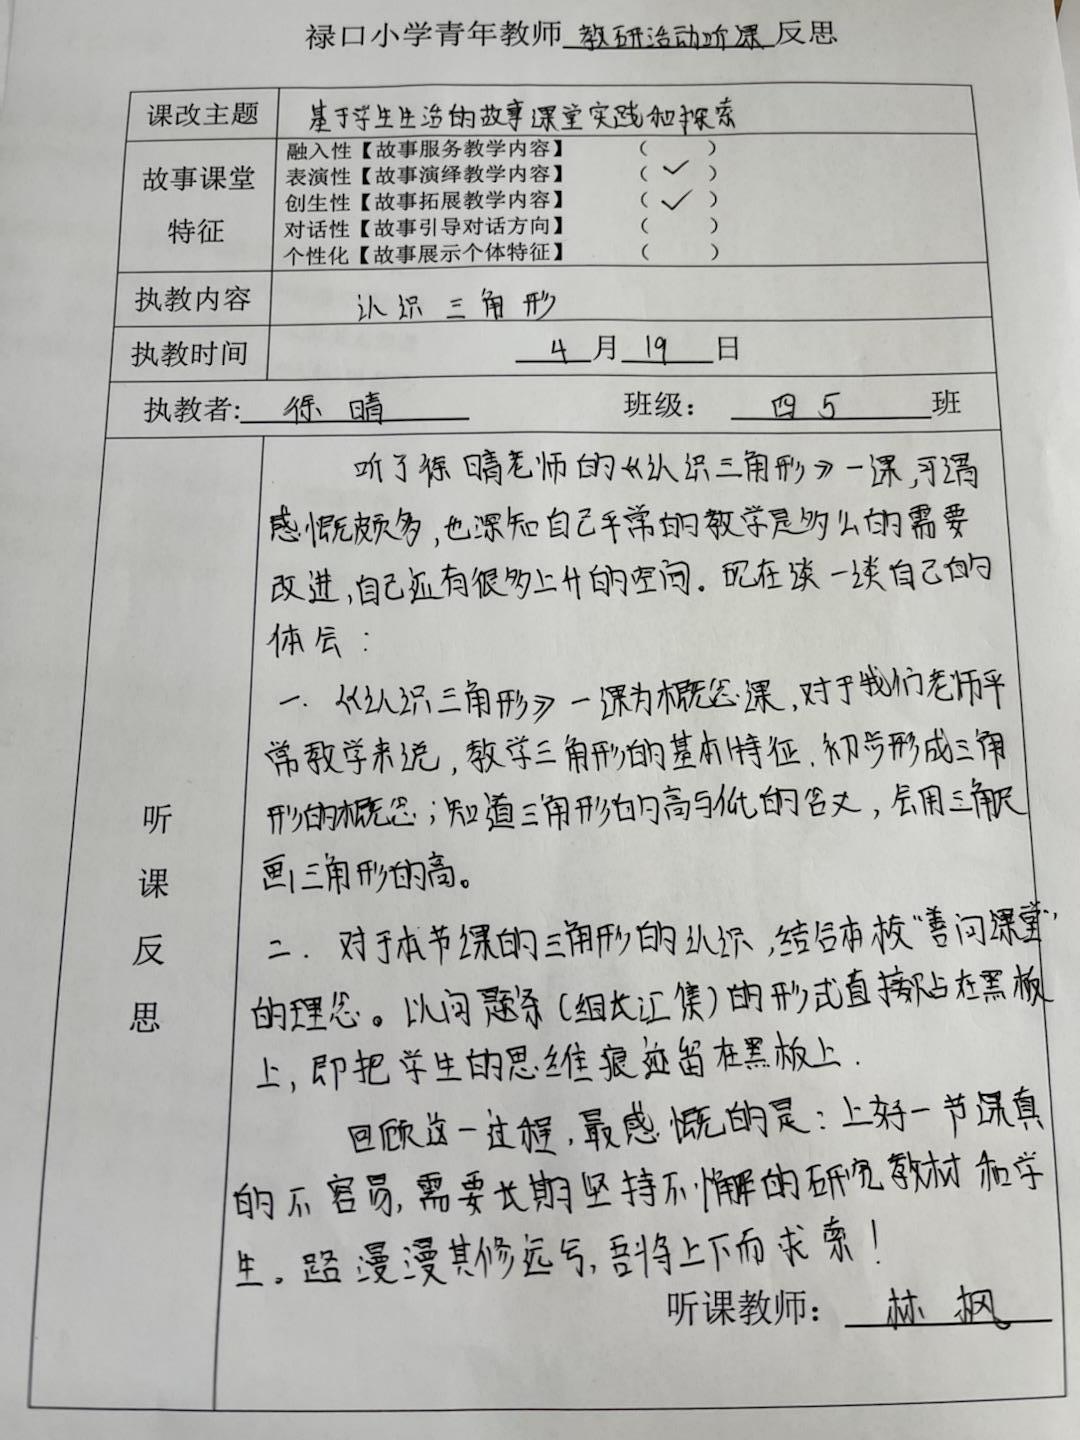 禄口小学青年教师 教研活动听课 反思
课改主题 基于学生生活的故事课堂实践和探索
故事课堂
特征
融入性【故事服务教学内容】 （ ）
表演性【故事演绎教学内容】 （ ✓ ）
创生性【故事拓展教学内容】 （ ✓ ）
对话性【故事引导对话方向】 （ ）
个性化【故事展示个体特征】 （ ）
执教内容 认识三角形
执教时间 4 月 19 日
执教者: 徐晴 班级： 四5 班
听
课
反
思
听了徐晴老师的《认识三角形》一课,可谓
感慨颇多,也深知自己平常的教学是多么的需要
改进,自己还有很多上升的空间。现在谈一谈自己的
体会：
一.《认识三角形》一课为概念课,对于我们老师平
常教学来说,教学三角形的基本特征.初步形成三角
形的概念；知道三角形的高与低的含义,会用三角尺
画三角形的高。
二.对于本节课的三角形的认识,结合本校“善问课堂”
的理念。以问题条(组长汇集)的形式直接贴在黑板
上,即把学生的思维痕迹留在黑板上.
回顾这一过程,最感慨的是：上好一节课真
的不容易,需要长期坚持不懈的研究教材和学
生。路漫漫其修远兮,吾将上下而求索！
听课教师： 林枫